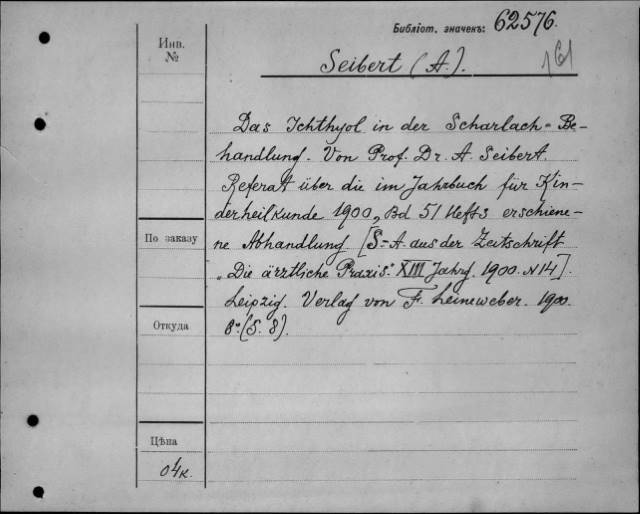 Библіот. значекъ: 62576.
Инв.
№
Seibert (A.).
161
Das Ichthyol in der Scharlach-Be-
handlung. Von Prof. Dr. A. Seibert.
Referat über die im Jahrbuch für Kin-
derheilkunde 1900, Bd 51 Heft 3 erschiene-
ne Abhandlung [S-A aus der Zeitschrift
По заказу
„Die ärztliche Praxis." XIII Jahrg. 1900. N 14].
Leipzig. Verlag von F. Leineweber. 1900.
8° (S. 8).
Откуда
Цѣна